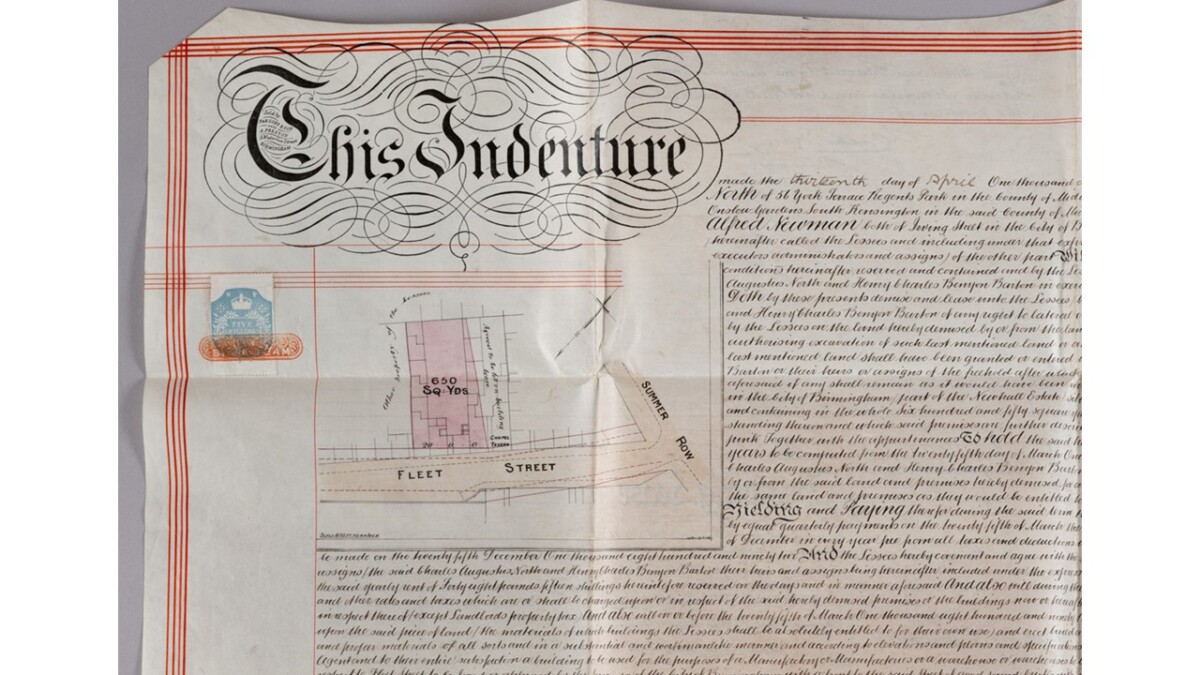 This Indenture
made the thirteenth day of April One thousand
North of 56 York Terrace Regents Park in the County of
Onslow Gardens South Kensington in the said County of
Alfred Newman both of Irving Street in the City of
hereinafter called the Lessees and including under that
executors administrators and assigns) of the other part
conditions hereinafter reserved and contained and by the
Augustus North and Henry Charles Benyon Barton in
Doth by these presents demise and lease unto the Lessees
and Henry Charles Benyon Barton of any right to lateral
by the Lessees on the land hereby demised by or from the
authorising excavation of such last mentioned land or
last mentioned land shall have been granted or entered
Barton or their heirs or assigns of the freehold after which
aforesaid if any shall remain as it would have been
in the City of Birmingham part of the Newhall Estate
and containing in the whole Six hundred and fifty square
standing thereon and which said premises are further
pink Together with the appurtenances To hold the said
years to be computed from the twenty fifth day of March One
Charles Augustus North and Henry Charles Benyon Barton
by or from the said land and premises hereby demised
the same land and premises as they would be entitled
Yielding and Paying therefor during the said term
by equal quarterly payments on the twenty fifth of March
of December in every year free from all taxes and deductions
FIVE
Other property of the Lessors
650
SQ. YDS
Agreed to be let on building lease
SUMMER ROW
FLEET STREET
be made on the twenty fifth December One thousand eight hundred and ninety two And the Lessees hereby covenant and agree with the
assigns (the said Charles Augustus North and Henry Charles Benyon Barton their heirs and assigns being hereinafter included under the
the said yearly rent of Forty eight pounds fifteen shillings hereinbefore reserved on the days and in manner aforesaid And also will during the
and other rates and taxes which are or shall be charged upon or in respect of the said hereby demised premises or the buildings now or
in respect thereof (except Landlords property tax) And also will on or before the twenty fifth of March One thousand eight hundred and
upon the said piece of land (the materials of which buildings the Lessees shall be absolutely entitled to for their own use) and erect
and proper materials of all sorts and in a substantial and workmanlike manner and according to elevations and plans and
Agent and to their entire satisfaction a building to be used for the purposes of a Manufactory or Manufactories or a warehouse or warehouses